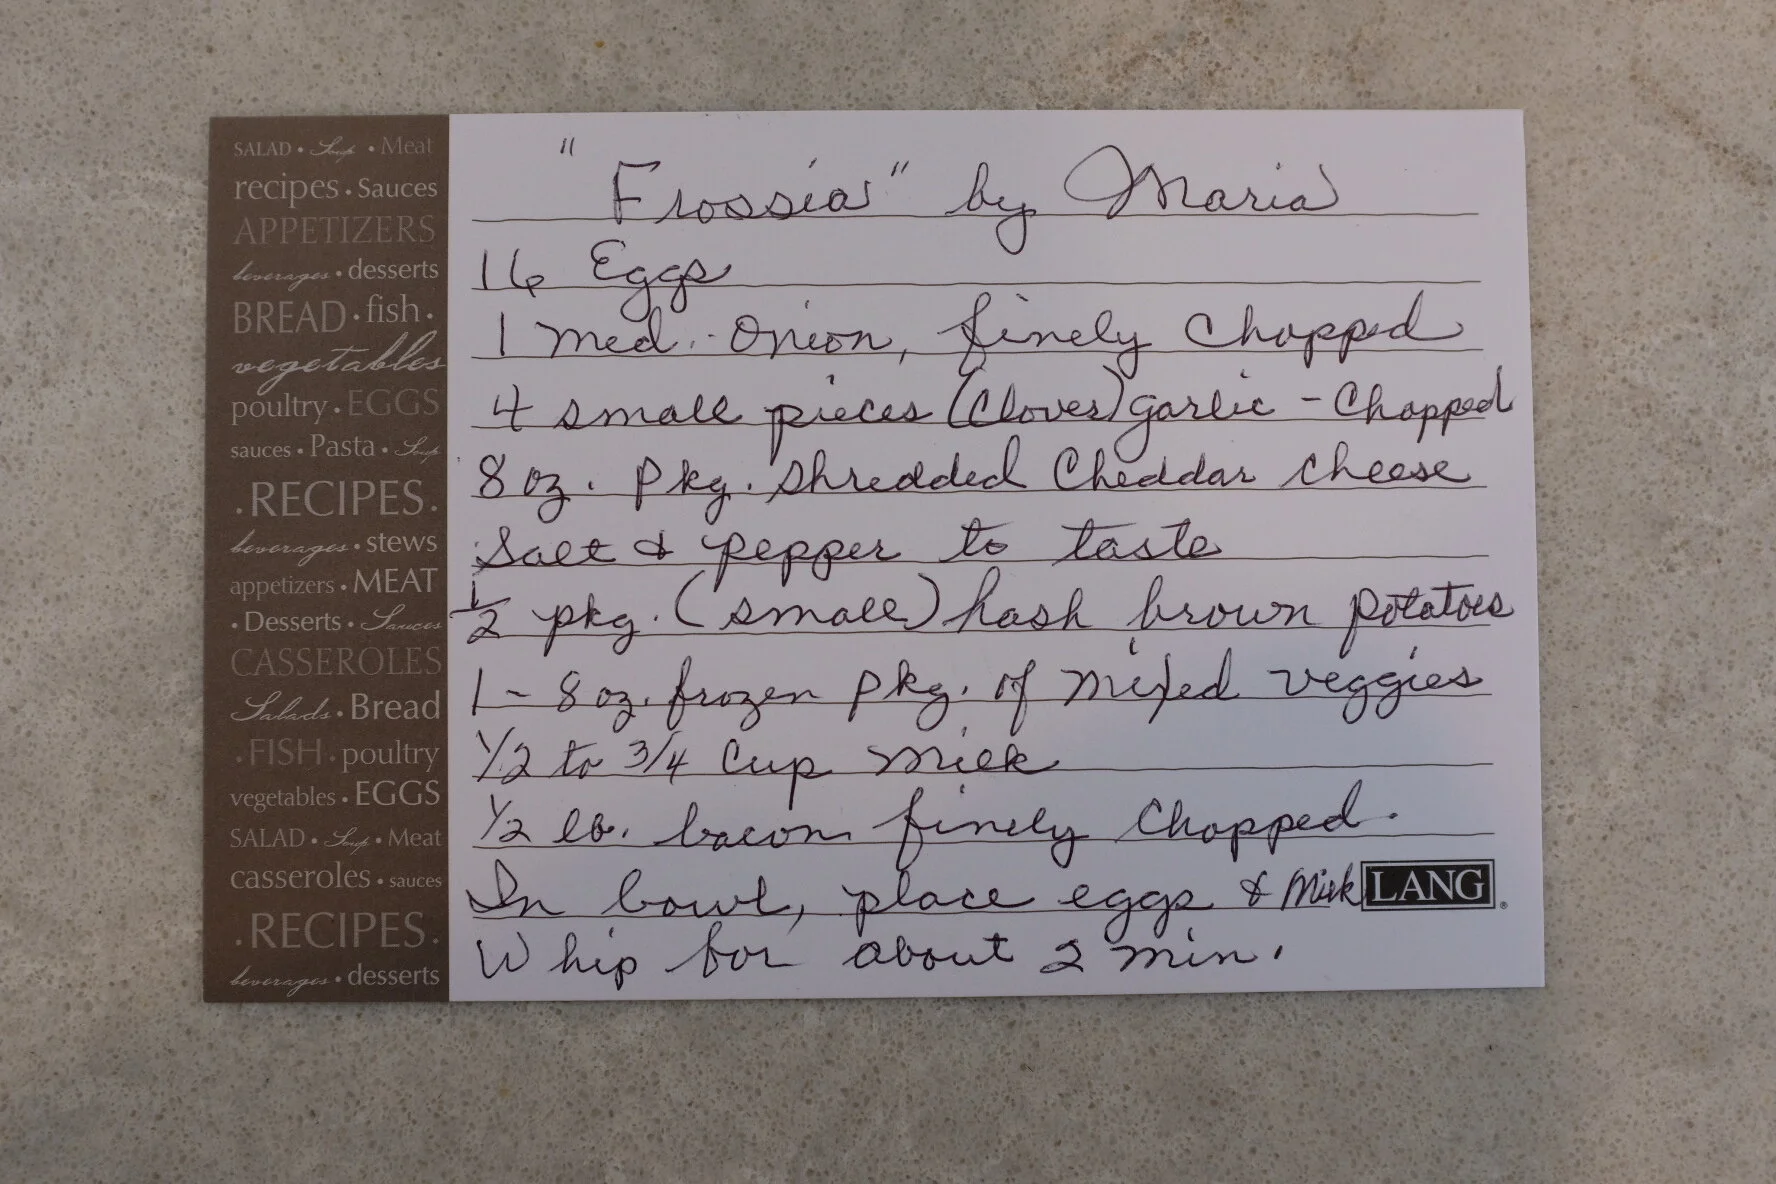 SALAD • Soup • Meat
recipes • Sauces
APPETIZERS
beverages • desserts
BREAD • fish •
vegetables
poultry • EGGS
sauces • Pasta • Soup
• RECIPES •
beverages • stews
appetizers • MEAT
• Desserts • Sauces
CASSEROLES
Salads • Bread
• FISH • poultry
vegetables • EGGS
SALAD • Soup • Meat
casseroles • sauces
• RECIPES •
beverages • desserts
"Frossia" by Maria
16 Eggs
1 med. Onion, finely Chopped
4 small pieces (Cloves) garlic - Chopped
8 oz. pkg. shredded Cheddar cheese
Salt & pepper to taste
1/2 pkg. (small) hash brown potatoes
1 - 8 oz. frozen pkg. of mixed veggies
1/2 to 3/4 Cup milk
1/2 lb. bacon finely Chopped.
In bowl, place eggs & Milk
Whip for about 2 min.
LANG®